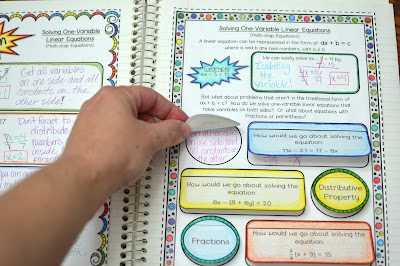 Get all variables
on one side and all
constants on
the other side!
Don't forget to
distribute
numbers
inside
x=2
Solving One-Variable
Linear Equations
(Multi-step Equations)
Solving One-Variable Linear Equations
(Multi-step Equations)
A linear equation can be represented in the form of ax + b = c,
where a and b are real numbers, with a ≠ 0
Example:
We can easily solve
by
isolating
the
variable
x=4
But what about problems that aren't in the traditional form of
ax + b = c? How do we solve one-variable linear equations that
have variables on both sides? Or what about equations with
fractions or parenthesis?
on one side and
constants on
the other
How would we go about solving the
equation:
11x - 21 = 17 - 8x
How would we go about solving the
equation:
8x - (8 + 6y) = 20
Distributive
Property
Fractions
How would we go about solving the
equation:
(x + 9) = 15